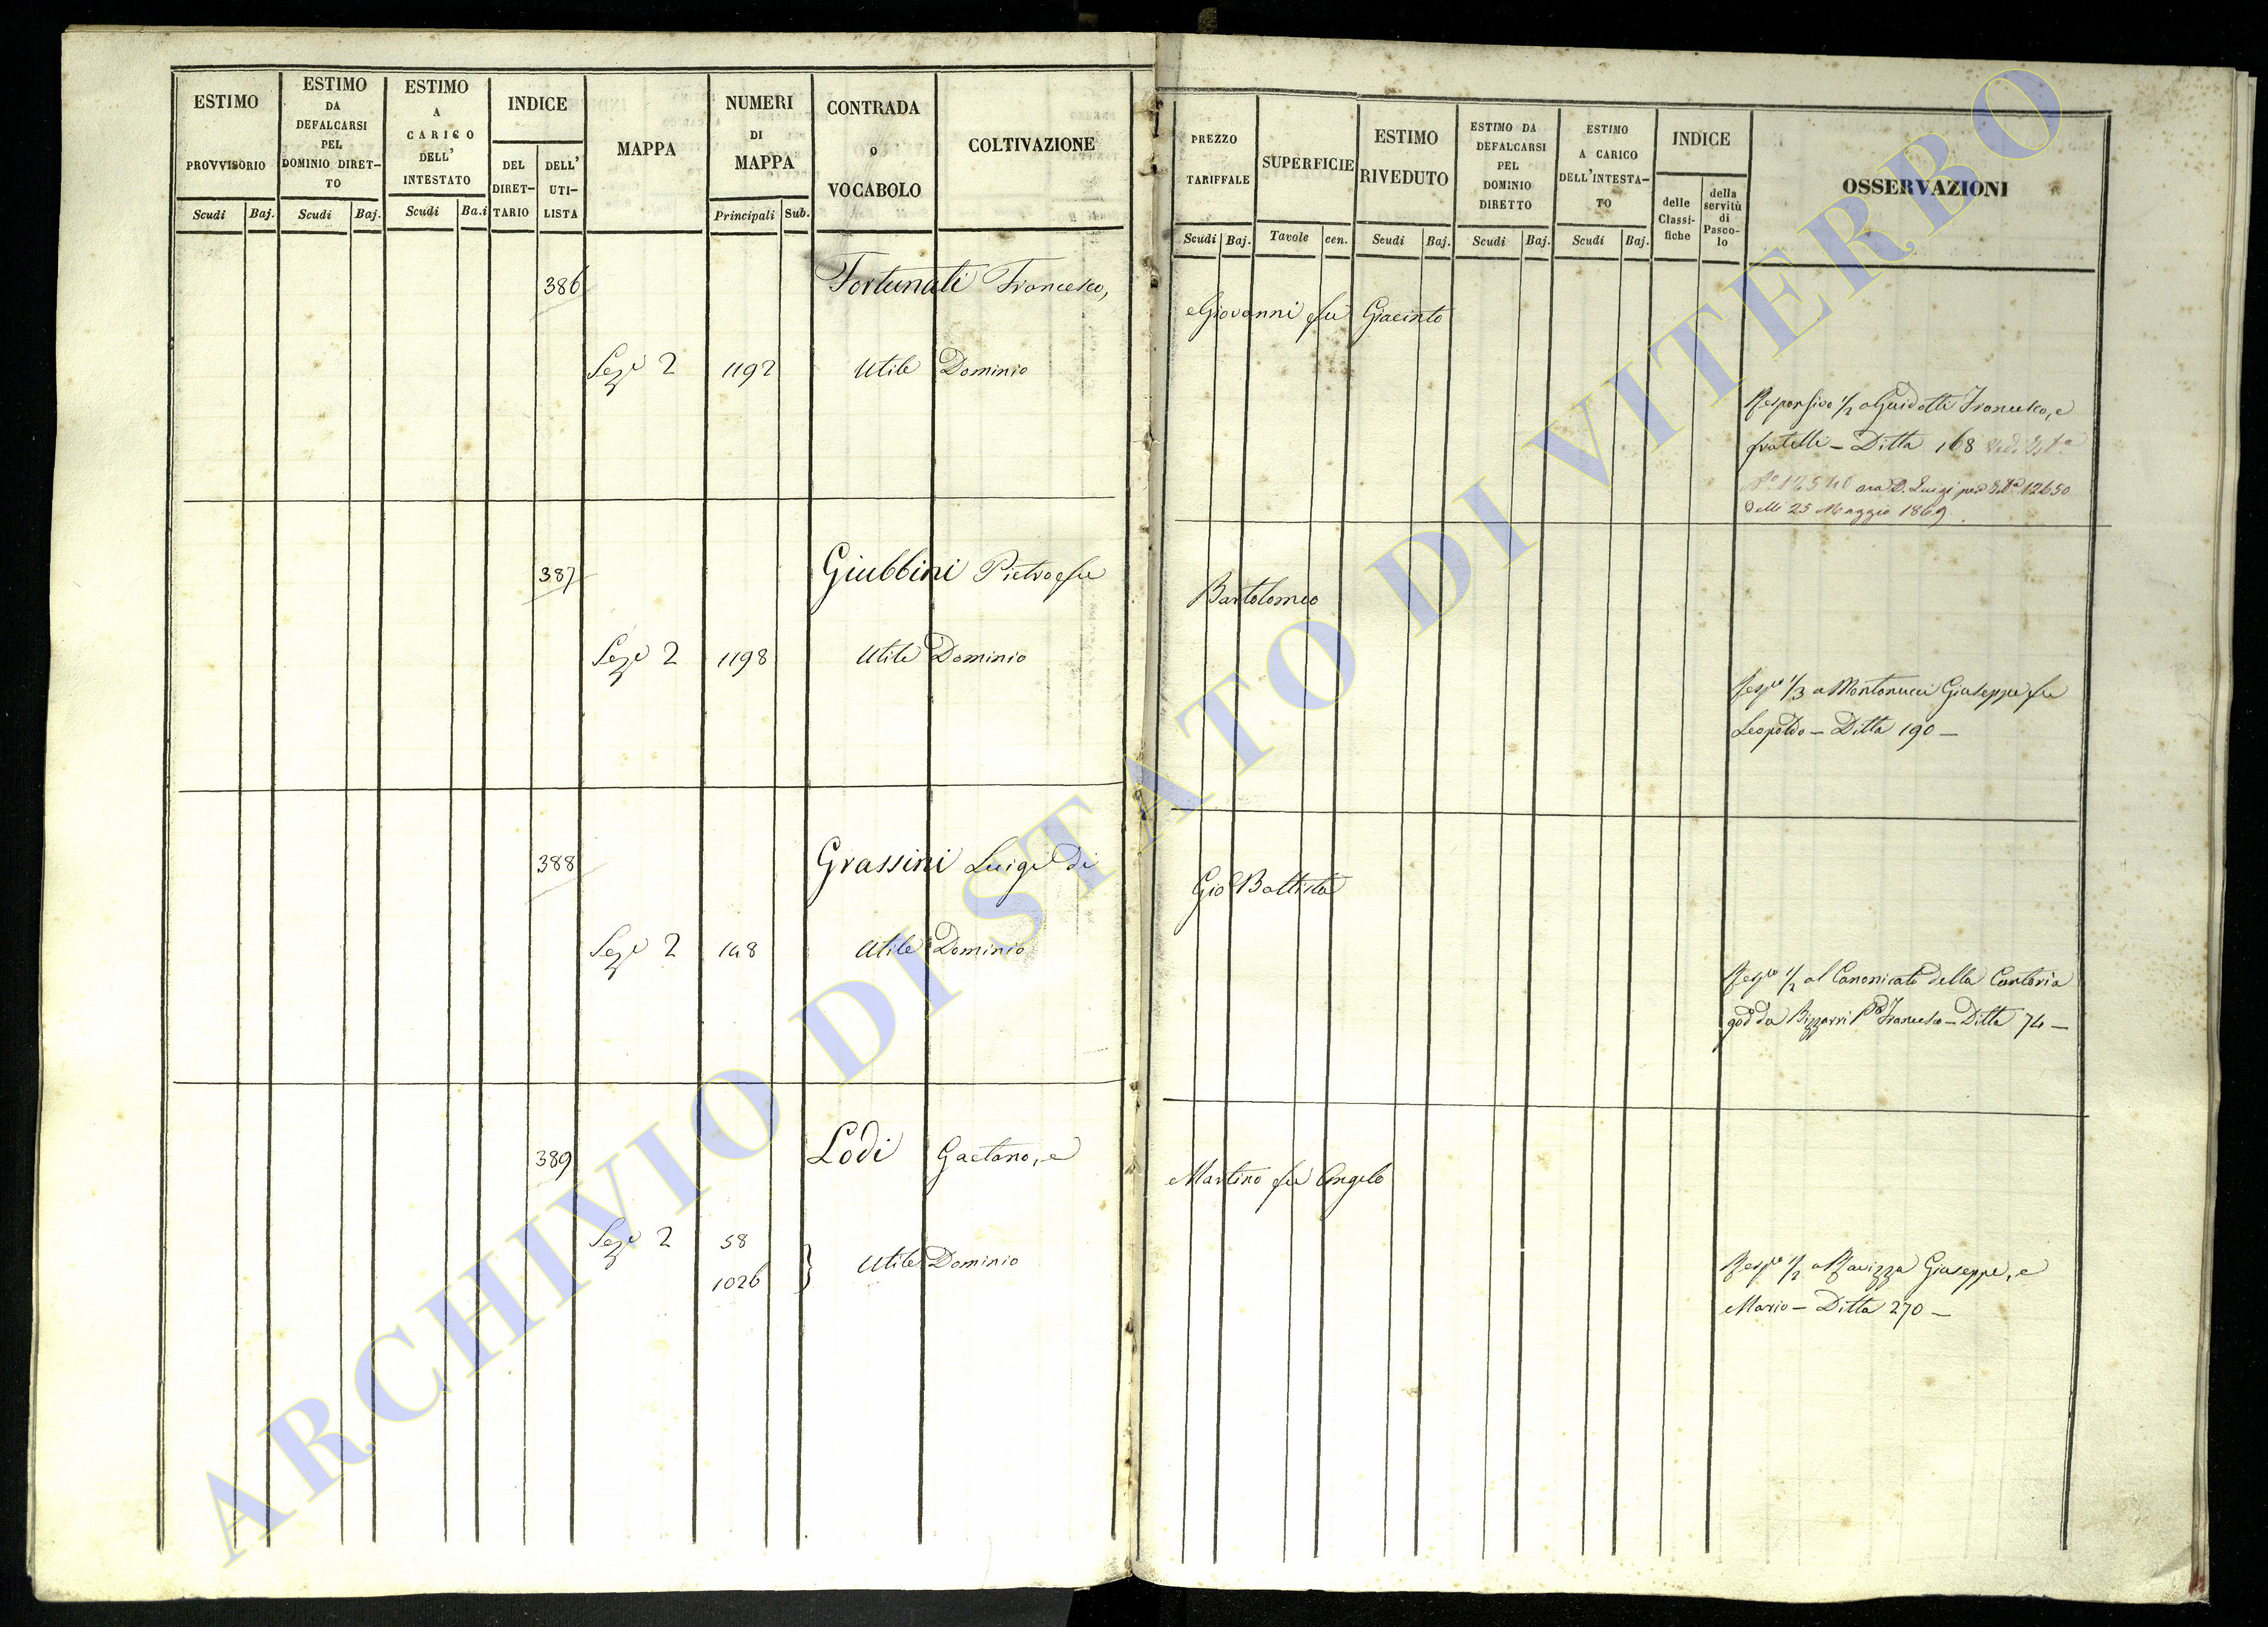 ESTIMO
PROVVISORIO
Scudi Baj.
ESTIMO
DA
DEFALCARSI
PEL
DOMINIO DIRET-
TO
Scudi Baj.
ESTIMO
A
CARICO
DELL'
INTESTATO
Scudi Ba.i
INDICE
DEL
DIRET-
TARIO
DELL'
UTI-
LISTA
MAPPA
NUMERI
DI
MAPPA
Principali Sub.
CONTRADA
O
VOCABOLO
COLTIVAZIONE
PREZZO
TARIFFALE
Scudi Baj.
SUPERFICIE
Tavole cen.
ESTIMO
RIVEDUTO
Scudi Baj.
ESTIMO DA
DEFALCARSI
PEL
DOMINIO
DIRETTO
Scudi Baj.
ESTIMO
A CARICO
DELL'INTESTA-
TO
Scudi Baj.
INDICE
delle
Classi-
fiche
della
servitù
di
Pasco-
lo
OSSERVAZIONI
386 Fortunati Francesco, Giovanni fu Giacinto
Seze 2 1192 Utile Dominio
Responsivo 1/2 a Guidotti Francesco, e
fratelli - Ditta 168
ora D. Luigi per 12650
Delli 25 Maggio 1869.
387 Giubbini Pietro fu Bartolomeo
Seze 2 1198 Utile Dominio
Respvo 1/3 a Montonucci Giuseppe fu
Leopoldo - Ditta 190 -
388 Grassini Luigi di Gio Battista
Seze 2 148 Utile Dominio
Respvo 1/2 al Canonicato della Cantoria
god da Bizzarri Francesco - Ditta 74 -
389 Lodi Gaetano, e Martino fu Angelo
Seze 2 58
1026 } Utile Dominio
Respvo 1/2 a Ravizza Giuseppe, e
Mario - Ditta 270 -
ARCHIVIO DI STATO DI VITERBO